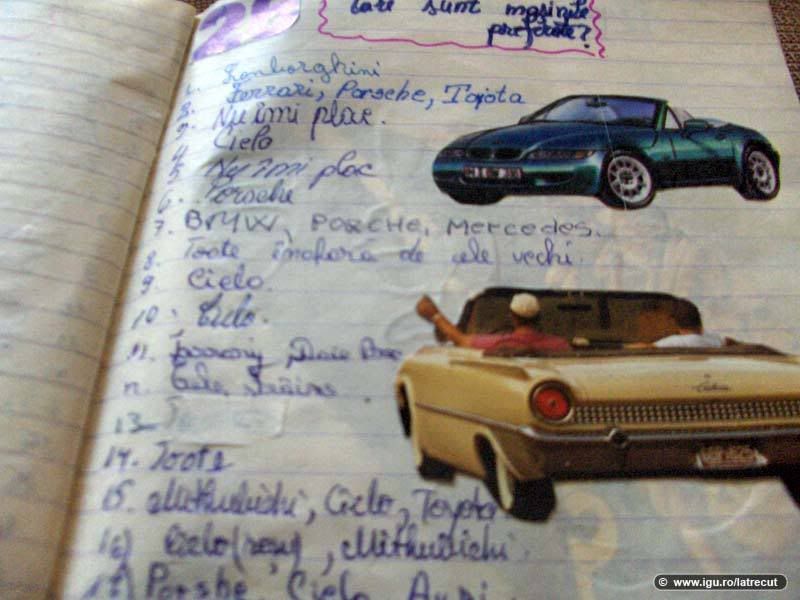 28
Care sunt mașinile
preferate?
1. Lamborghini
2. Ferrari, Porsche, Toyota
3. Nu îmi plac.
4. Cielo
5. Nu îmi plac
6. Porsche
7. BMW, PORCHE, Mercedes.
8. Toate înafară de cele vechi.
9. Cielo.
10. Cielo.
11.
12.
13.
14. Toate
15. Mithubishi, Cielo, Toyota.
16) Cielo , Mithubishi.
17) Porshe, Cielo, Audi.
© www.igu.ro/latrecut